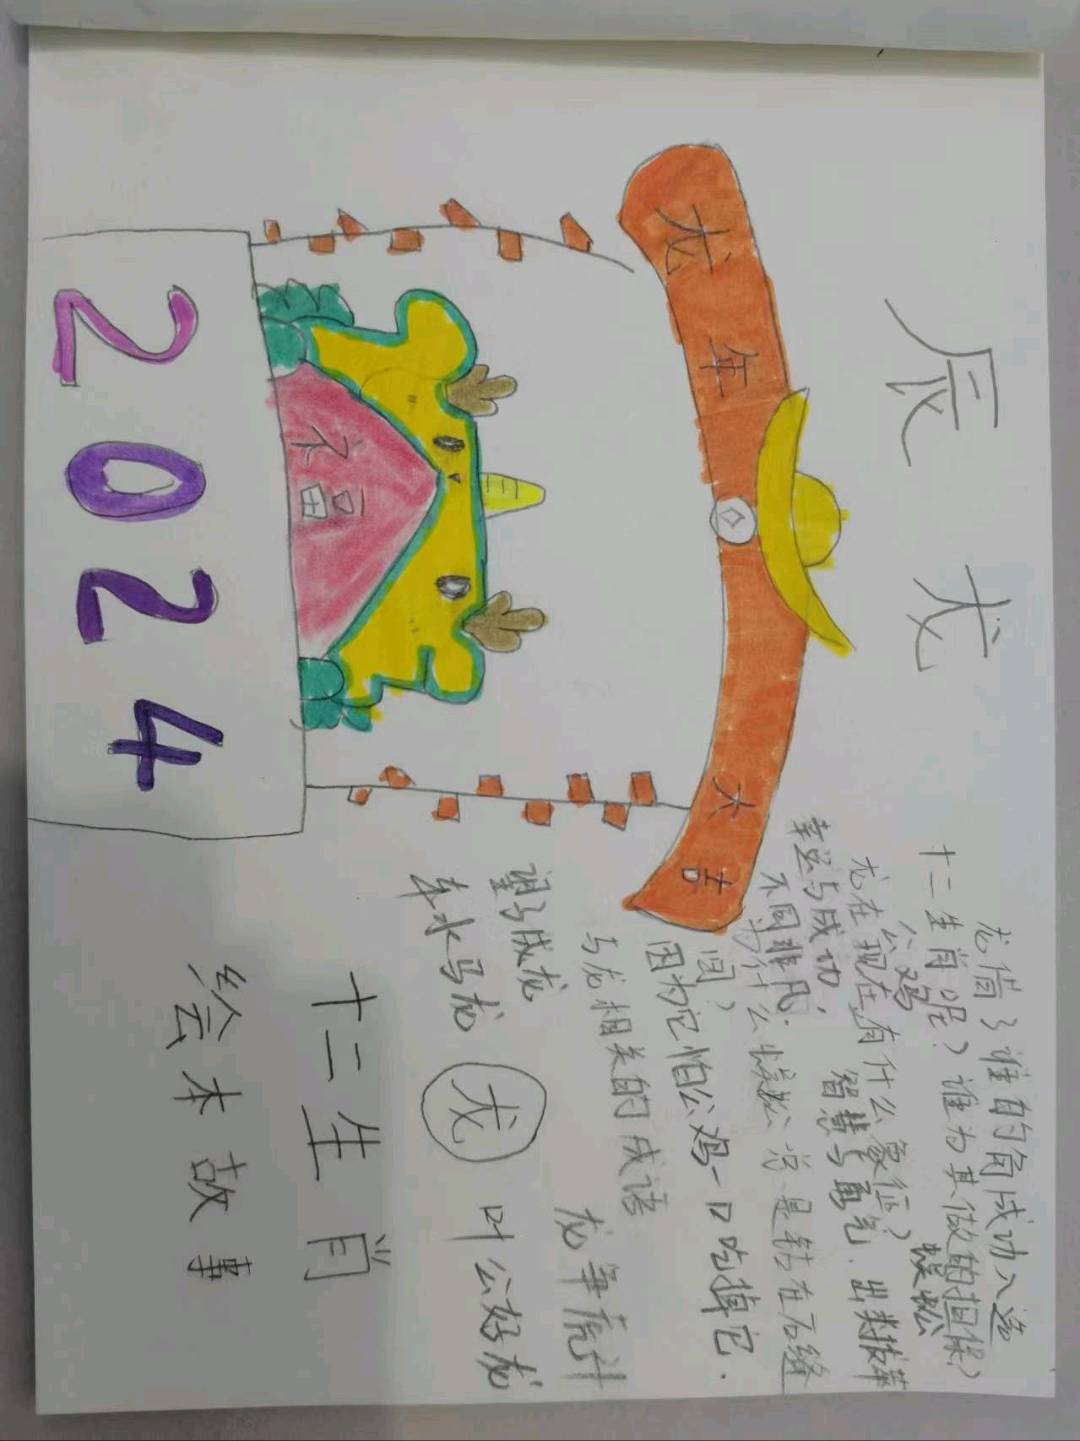 辰龙
龙年大吉
2024
龙借了谁的角成功入选
十二生肖呢？谁为其做的担保？
公鸡 蜈蚣
龙在现在有什么象征？
幸运与成功，智慧与勇气，出类拔萃
不同非凡.
为什么蜈蚣总是钻在石缝
间？
因为它怕公鸡一口吃掉它.
与龙相关的成语
望子成龙 龙争虎斗
车水马龙 龙 叶公好龙
十二生肖
绘本故事